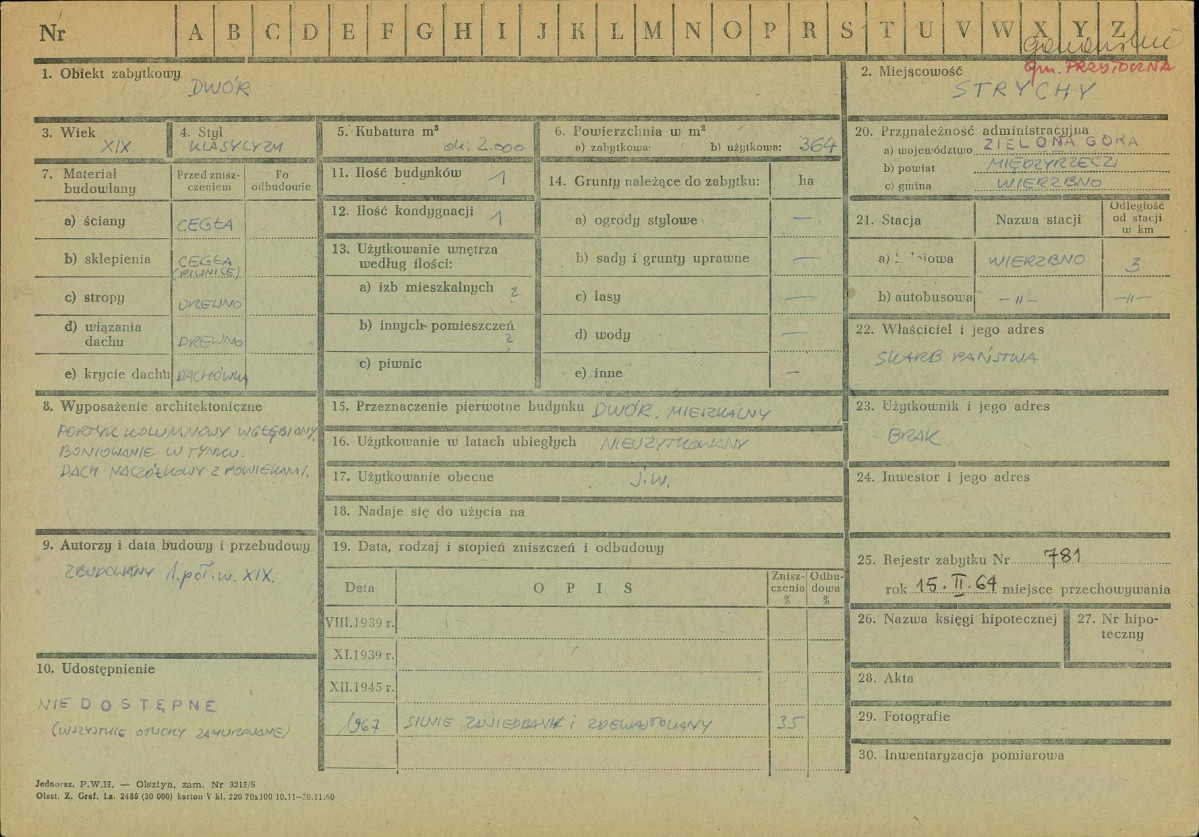 Nr A B C D E F G H I J K L M N O P R S T U V W X Y Z
gm. PRZYTOCZNA
1. Obiekt zabytkowy
DWÓR
2. Miejscowość
STRYCHY
3. Wiek
XIX
4. Styl
KLASYCYZM
5. Kubatura m³
ok. 2.000
6. Powierzchnia w m²
a) zabytkowa: b) użytkowa: 364
20. Przynależność administracyjna
a) województwo ZIELONA GÓRA
b) powiat MIĘDZYRZECZ
c) gmina WIERZBNO
7. Materiał budowlany
Przed zniszczeniem
Po odbudowie
a) ściany CEGŁA
b) sklepienia CEGŁA (PIWNICE)
c) stropy DREWNO
d) wiązania dachu DREWNO
e) krycie dachu DACHÓWKA
11. Ilość budynków 1
12. Ilość kondygnacji 1
13. Użytkowanie wnętrza według ilości:
a) izb mieszkalnych ?
b) innych pomieszczeń ?
c) piwnic
14. Grunty należące do zabytku: ha
a) ogrody stylowe —
b) sady i grunty uprawne —
c) lasy —
d) wody —
e) inne —
21. Stacja
Nazwa stacji
Odległość od stacji w km
a) WIERZBNO 3
b) autobusowa —„— —„—
22. Właściciel i jego adres
SKARB PAŃSTWA
8. Wyposażenie architektoniczne
PORTYK KOLUMNOWY WGŁĘBIONY,
BONIOWANIE W TYNKU.
DACH NACZÓŁKOWY Z POWIEKAMI.
15. Przeznaczenie pierwotne budynku DWÓR. MIESZKALNY
16. Użytkowanie w latach ubiegłych NIEUŻYTKOWANY
17. Użytkowanie obecne J.W.
18. Nadaje się do użycia na
23. Użytkownik i jego adres
BRAK
24. Inwestor i jego adres
9. Autorzy i data budowy i przebudowy
ZBUDOWANY 1. poł. w. XIX.
19. Data, rodzaj i stopień zniszczeń i odbudowy
Data
O P I S
Zniszczenia %
Odbudowa %
VIII.1939 r.
XI.1939 r.
XII.1945 r.
1967 SILNIE ZANIEDBANY i ZDEWASTOWANY 35
25. Rejestr zabytku Nr 781
rok 15.II.64 miejsce przechowywania
26. Nazwa księgi hipotecznej
27. Nr hipoteczny
10. Udostępnienie
NIE DOSTĘPNE
(WSZYSTKIE OTWORY ZAMUROWANE)
28. Akta
29. Fotografie
30. Inwentaryzacja pomiarowa
Jednoraz. P.W.H. — Olsztyn, zam. Nr 3215/S
Olszt. Z. Graf. Lz. 2485 (30 000) karton V kl. 220 70x100 10.11—30.11.60